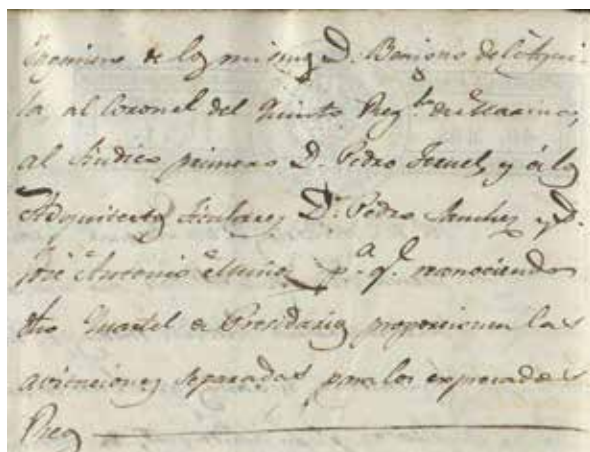 Ygeniero de los mismos D. Mariano de la Aqui-
la, al Coronel del Quinto Reg.to de Marina,
al Sindico primero D. Pedro Teruel, y á los
Arquitectos titulares D.n Pedro Sanchez y D.
José Antonio p.a q.e reconociendo
dho Quartel de Presidarios proporcionen las
avitaciones separadas para los expresados
Reos